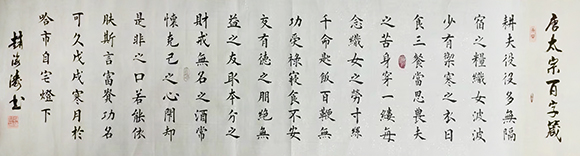 唐太宗百字箴
耕夫役役多無隔
宿之糧織女波波
少有禦寒之衣日
食三餐當思農夫
之苦身穿一縷每
念織女之勞寸絲
千命匙飯百鞭無
功受祿寢食不安
交有德之朋絕無
益之友取本分之
財戒無名之酒常
懷克己之心閉却
是非之口若能依
朕斯言富貴功名
可久戊戌寒月於
哈市自宅燈下
海濤書